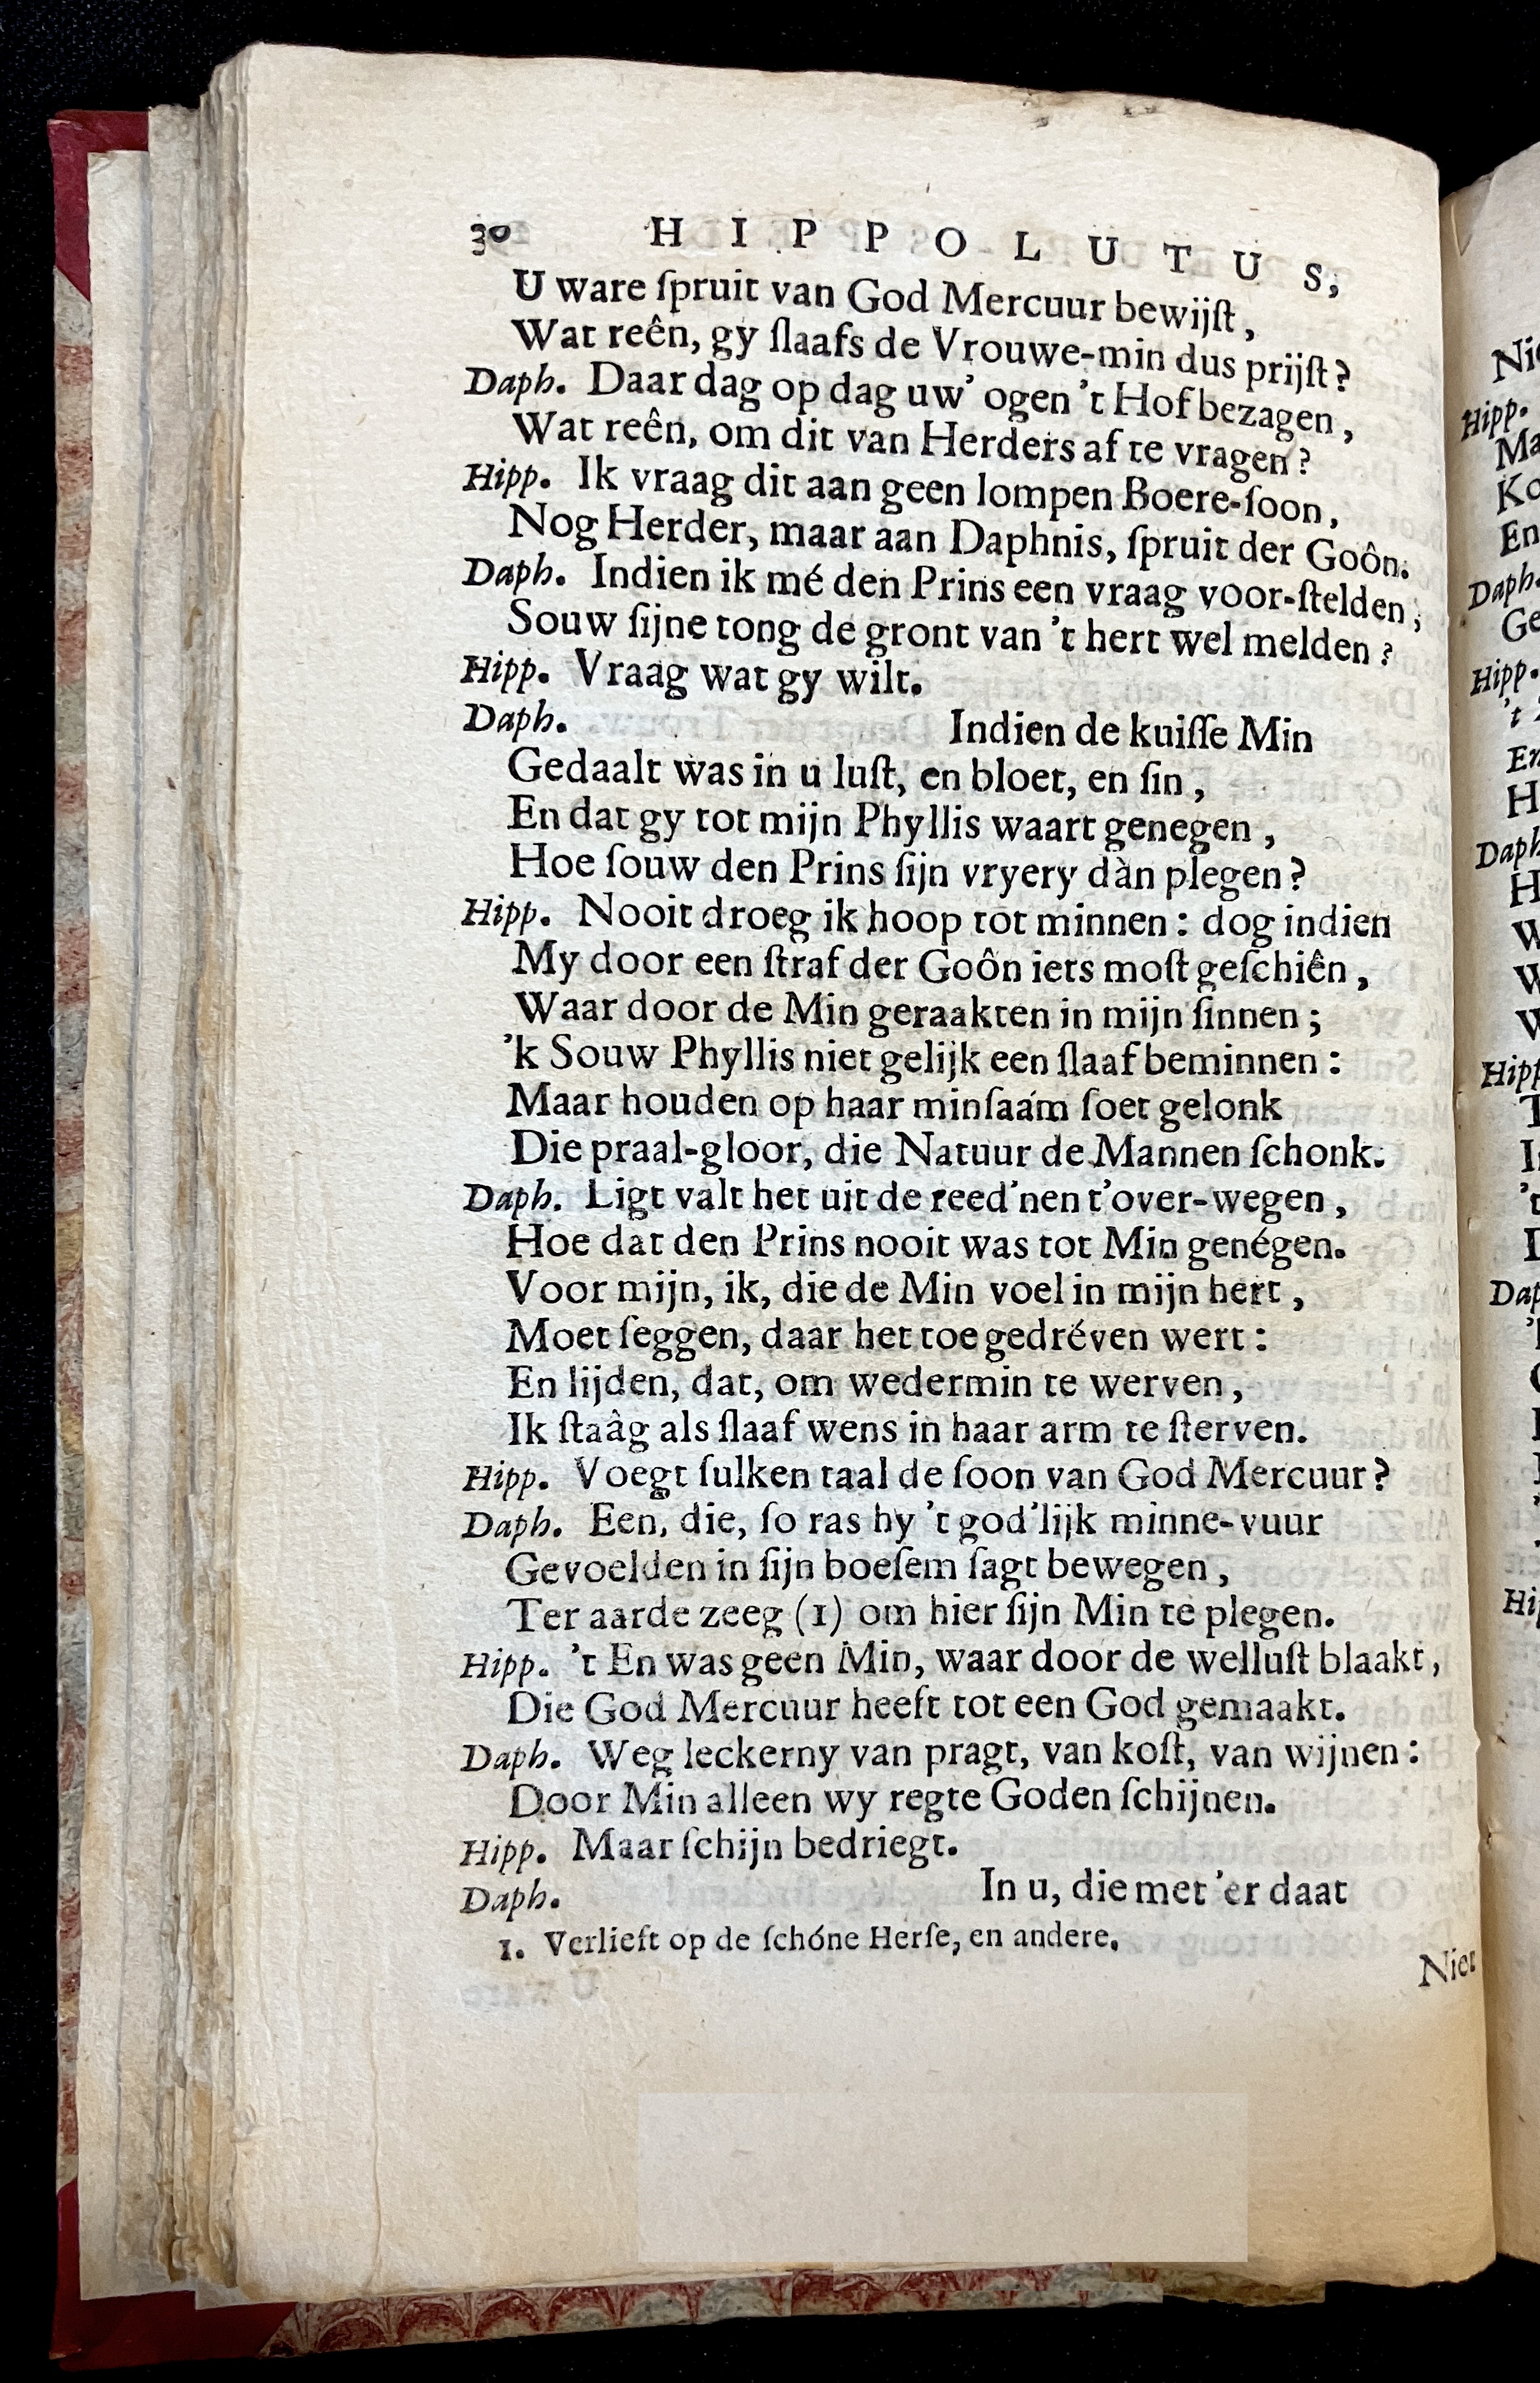 30 HIPPOLUTUS,
U ware ſpruit van God Mercuur bewijſt,
Wat reên, gy ſlaafs de Vrouwe-min dus prijſt?
Daph. Daar dag op dag uw' ogen 't Hof bezagen,
Wat reên, om dit van Herders af te vragen?
Hipp. Ik vraag dit aan geen lompen Boere-ſoon,
Nog Herder, maar aan Daphnis, ſpruit der Goôn.
Daph. Indien ik mé den Prins een vraag voor-ſtelden,
Souw ſijne tong de gront van 't hert wel melden?
Hipp. Vraag wat gy wilt.
Daph. Indien de kuiſſe Min
Gedaalt was in u luſt, en bloet, en ſin,
En dat gy tot mijn Phyllis waart genegen,
Hoe ſouw den Prins ſijn vryery dàn plegen?
Hipp. Nooit droeg ik hoop tot minnen: dog indien
My door een ſtraf der Goôn iets moſt geſchiên,
Waar door de Min geraakten in mijn ſinnen;
'k Souw Phyllis niet gelijk een ſlaaf beminnen:
Maar houden op haar minſaám ſoet gelonk
Die praal-gloor, die Natuur de Mannen ſchonk.
Daph. Ligt valt het uit de reed'nen t'over-wegen,
Hoe dat den Prins nooit was tot Min genégen.
Voor mijn, ik, die de Min voel in mijn hert,
Moet ſeggen, daar het toe gedréven wert:
En lijden, dat, om wedermin te werven,
Ik ſtaâg als ſlaaf wens in haar arm te ſterven.
Hipp. Voegt ſulken taal de ſoon van God Mercuur?
Daph. Een, die, ſo ras hy 't god'lijk minne-vuur
Gevoelden in ſijn boeſem ſagt bewegen,
Ter aarde zeeg (1) om hier ſijn Min te plegen.
Hipp. 't En was geen Min, waar door de welluſt blaakt,
Die God Mercuur heeft tot een God gemaakt.
Daph. Weg leckerny van pragt, van koſt, van wijnen:
Door Min alleen wy regte Goden ſchijnen.
Hipp. Maar ſchijn bedriegt.
Daph. In u, die met 'er daat
1. Verlieft op de ſchóne Herſe, en andere.
Niet
Hipp.
Ma
Ko
En
Daph.
Ge
Hipp.